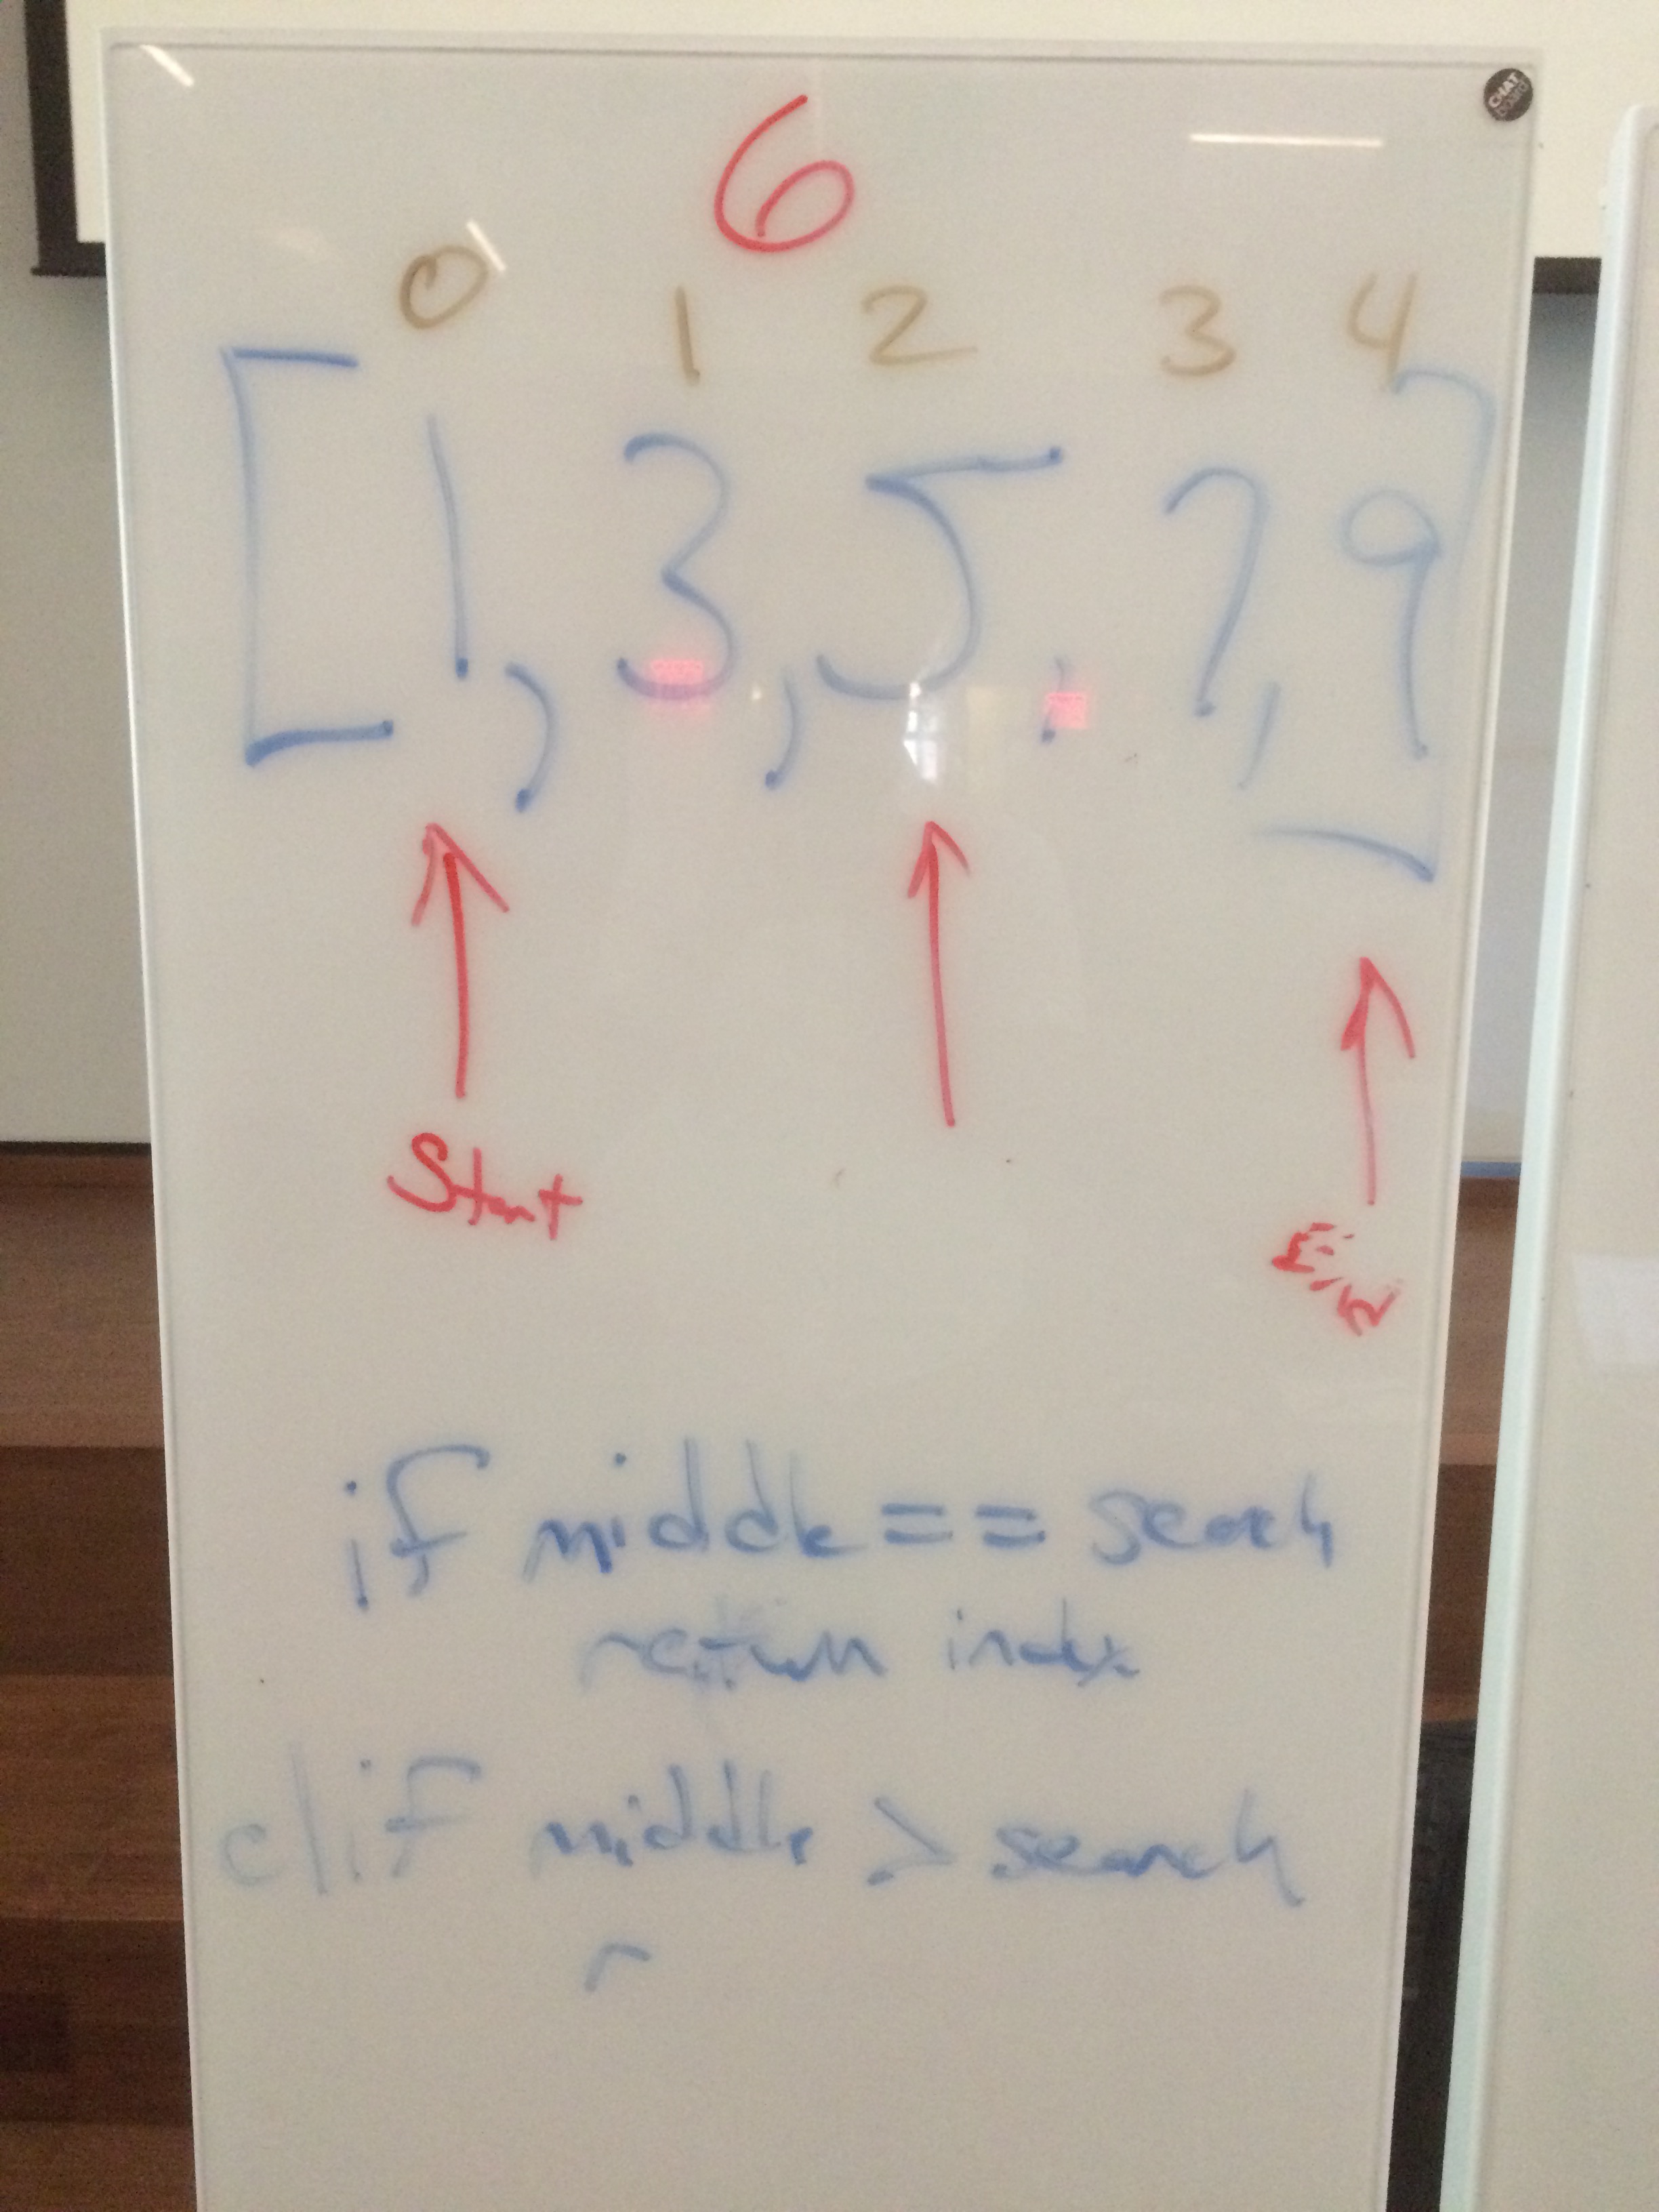 CHAT board
6
0 1 2 3 4
[1, 3, 5, 7, 9]
Start
if middle == search
return index
elif middle > search
r